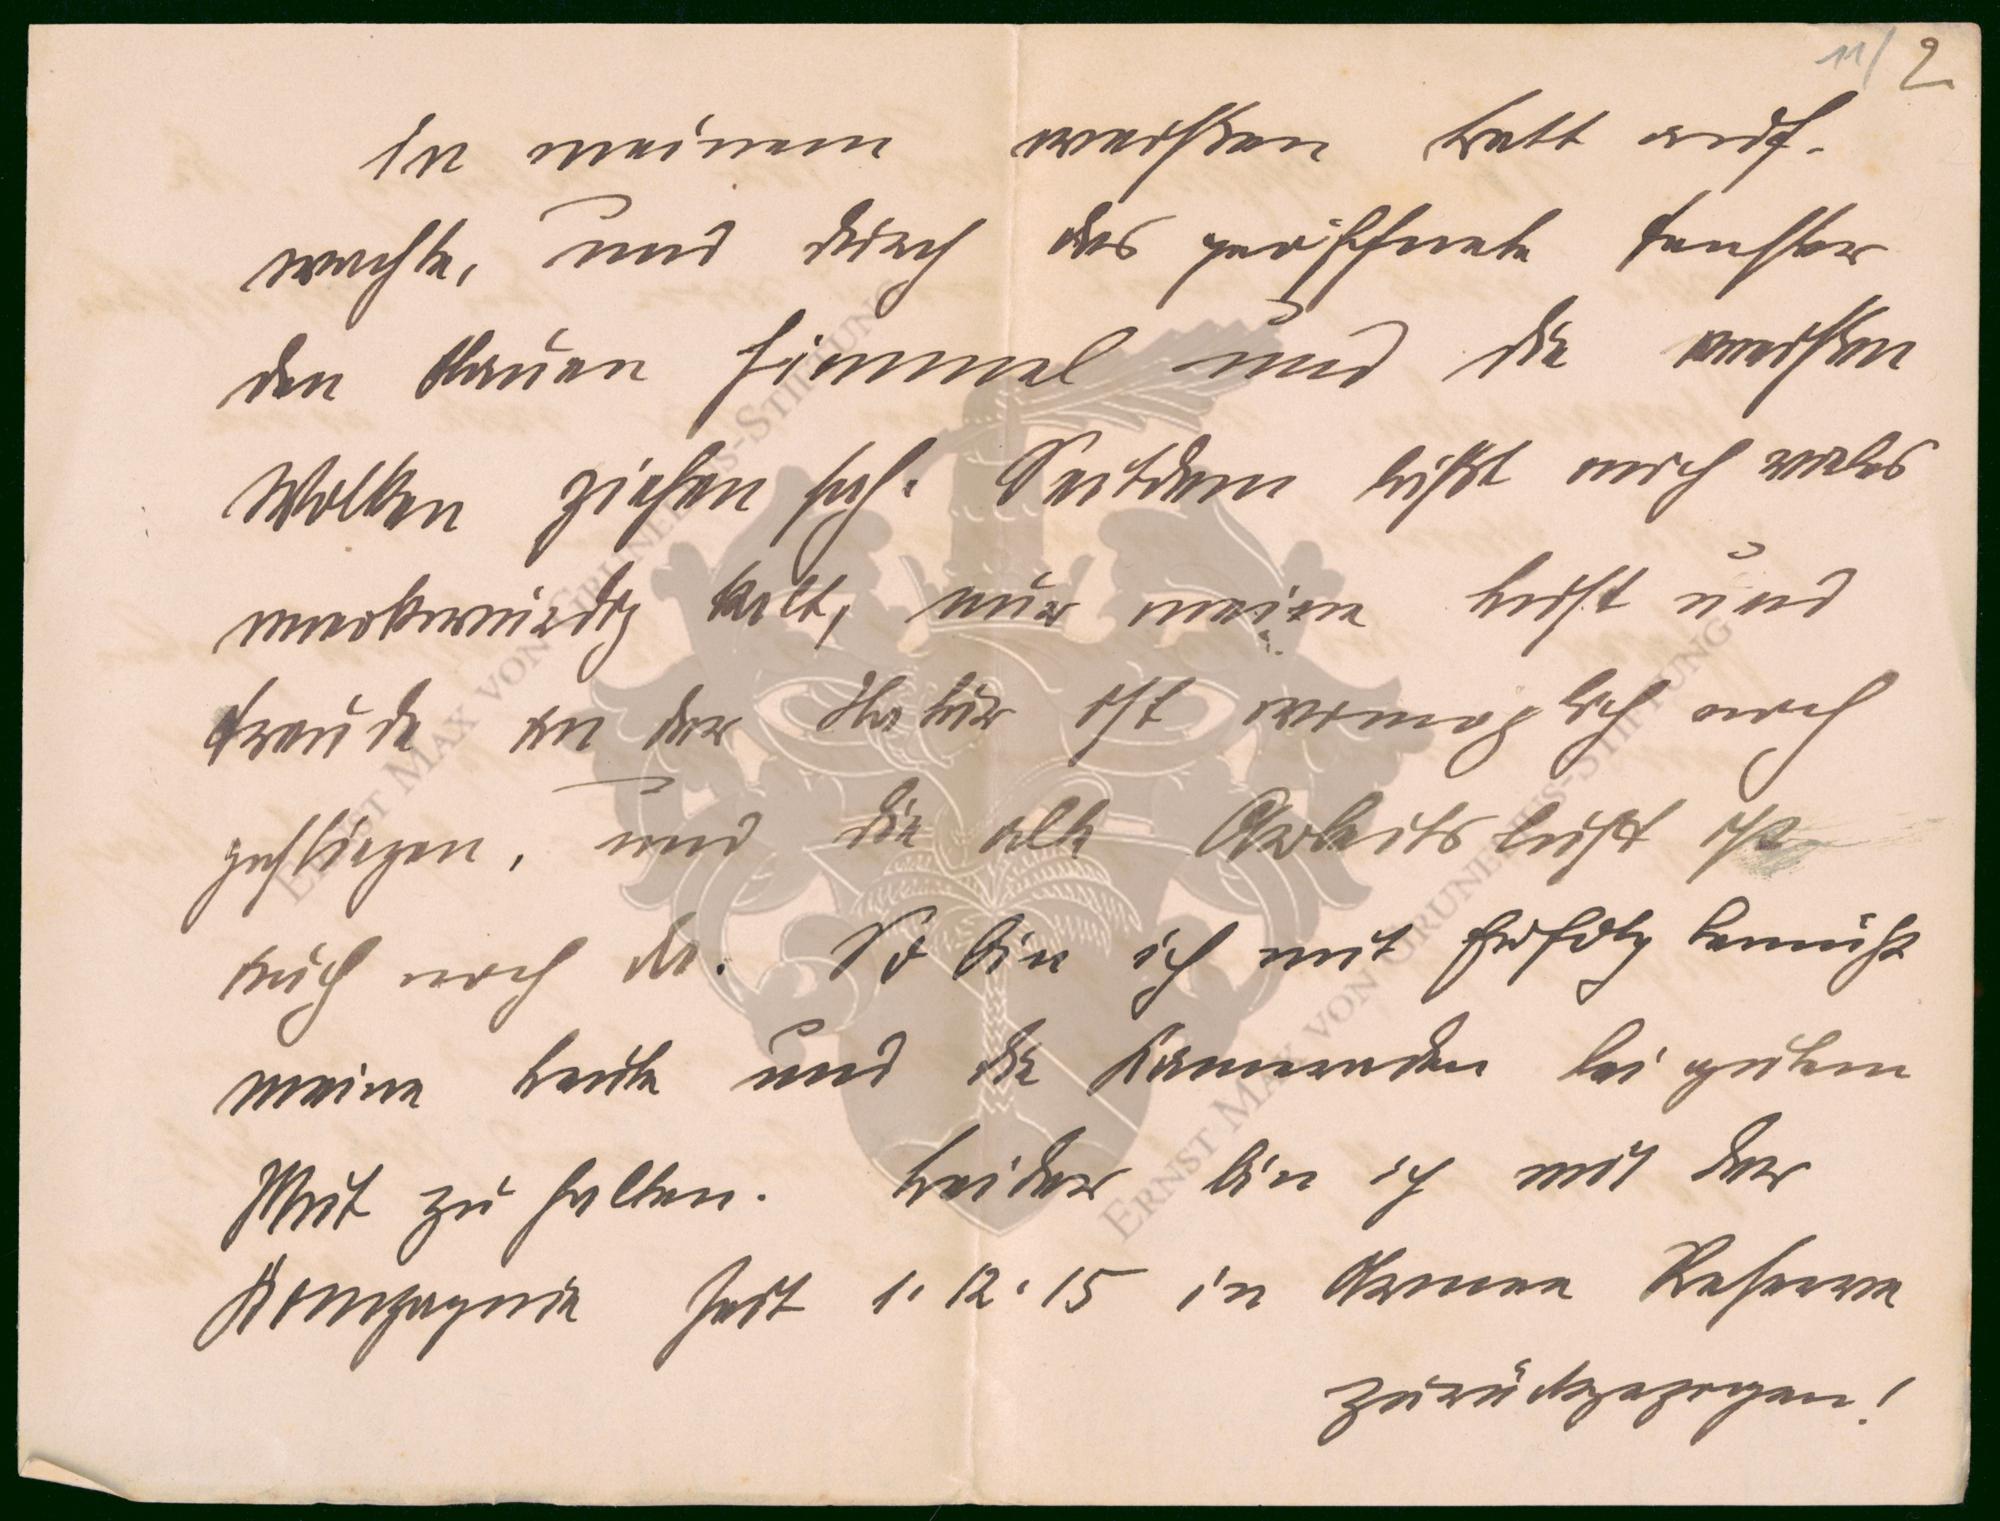 11/ 2
in meinem weißen Bett auf-
wachte, und durch das geöffnete Fenster
den blauen Himmel und die weißen
Wolken ziehen sah. Seitdem läßt mich vieles
merkwürdig kalt, nur meine Lust und
Freude an der Natur ist womöglich noch
gestiegen, und die alte Arbeitslust ist
auch noch da. So bin ich mit Erfolg bemüht
meine Leute und die Kameraden bei gutem
Mut zu halten. Leider bin ich mit der
Kompagnie seit 1.12.15 in Armee Reserve
zurückgezogen!
ERNST MAX VON GRUNELIUS-STIFTUNG
ERNST MAX VON GRUNELIUS-STIFTUNG